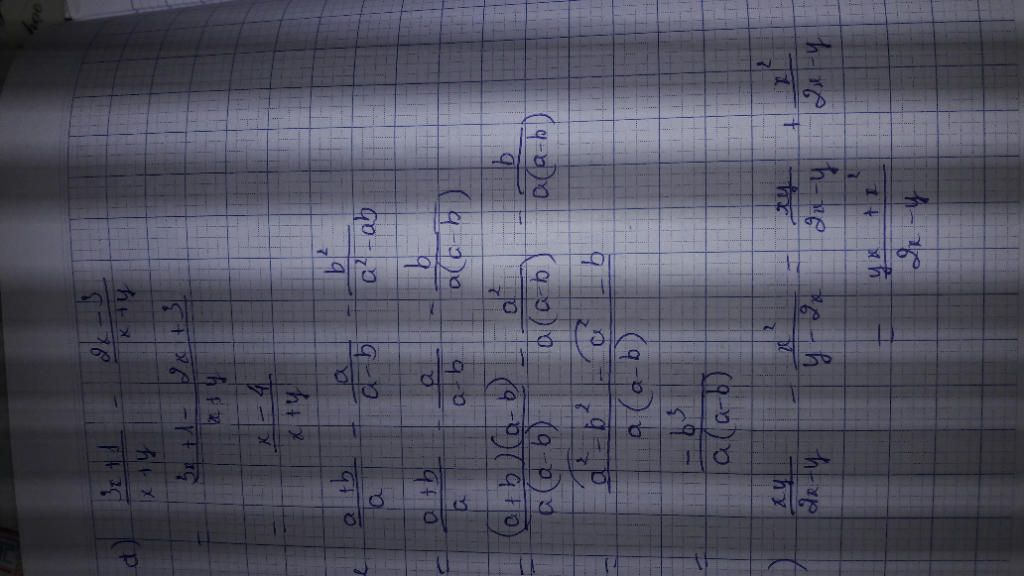 d) (3x+1)/(x+y) - (2x-3)/(x+y)
= (3x+1-2x+3)/(x+y)
= (x-4)/(x+y)
(a+b)/a - a/(a-b) - b²/(a²-ab)
= (a+b)/a - a/(a-b) - b/(a(a-b))
= (a+b)(a-b)/(a(a-b)) - a²/(a(a-b)) - b/(a(a-b))
= (a²-b²-a²-b)/(a(a-b))
= -b³/(a(a-b))
) xy/(2x-y) - x²/(y-2x) = xy/(2x-y) + x²/(2x-y)
= (yx+x²)/(2x-y)